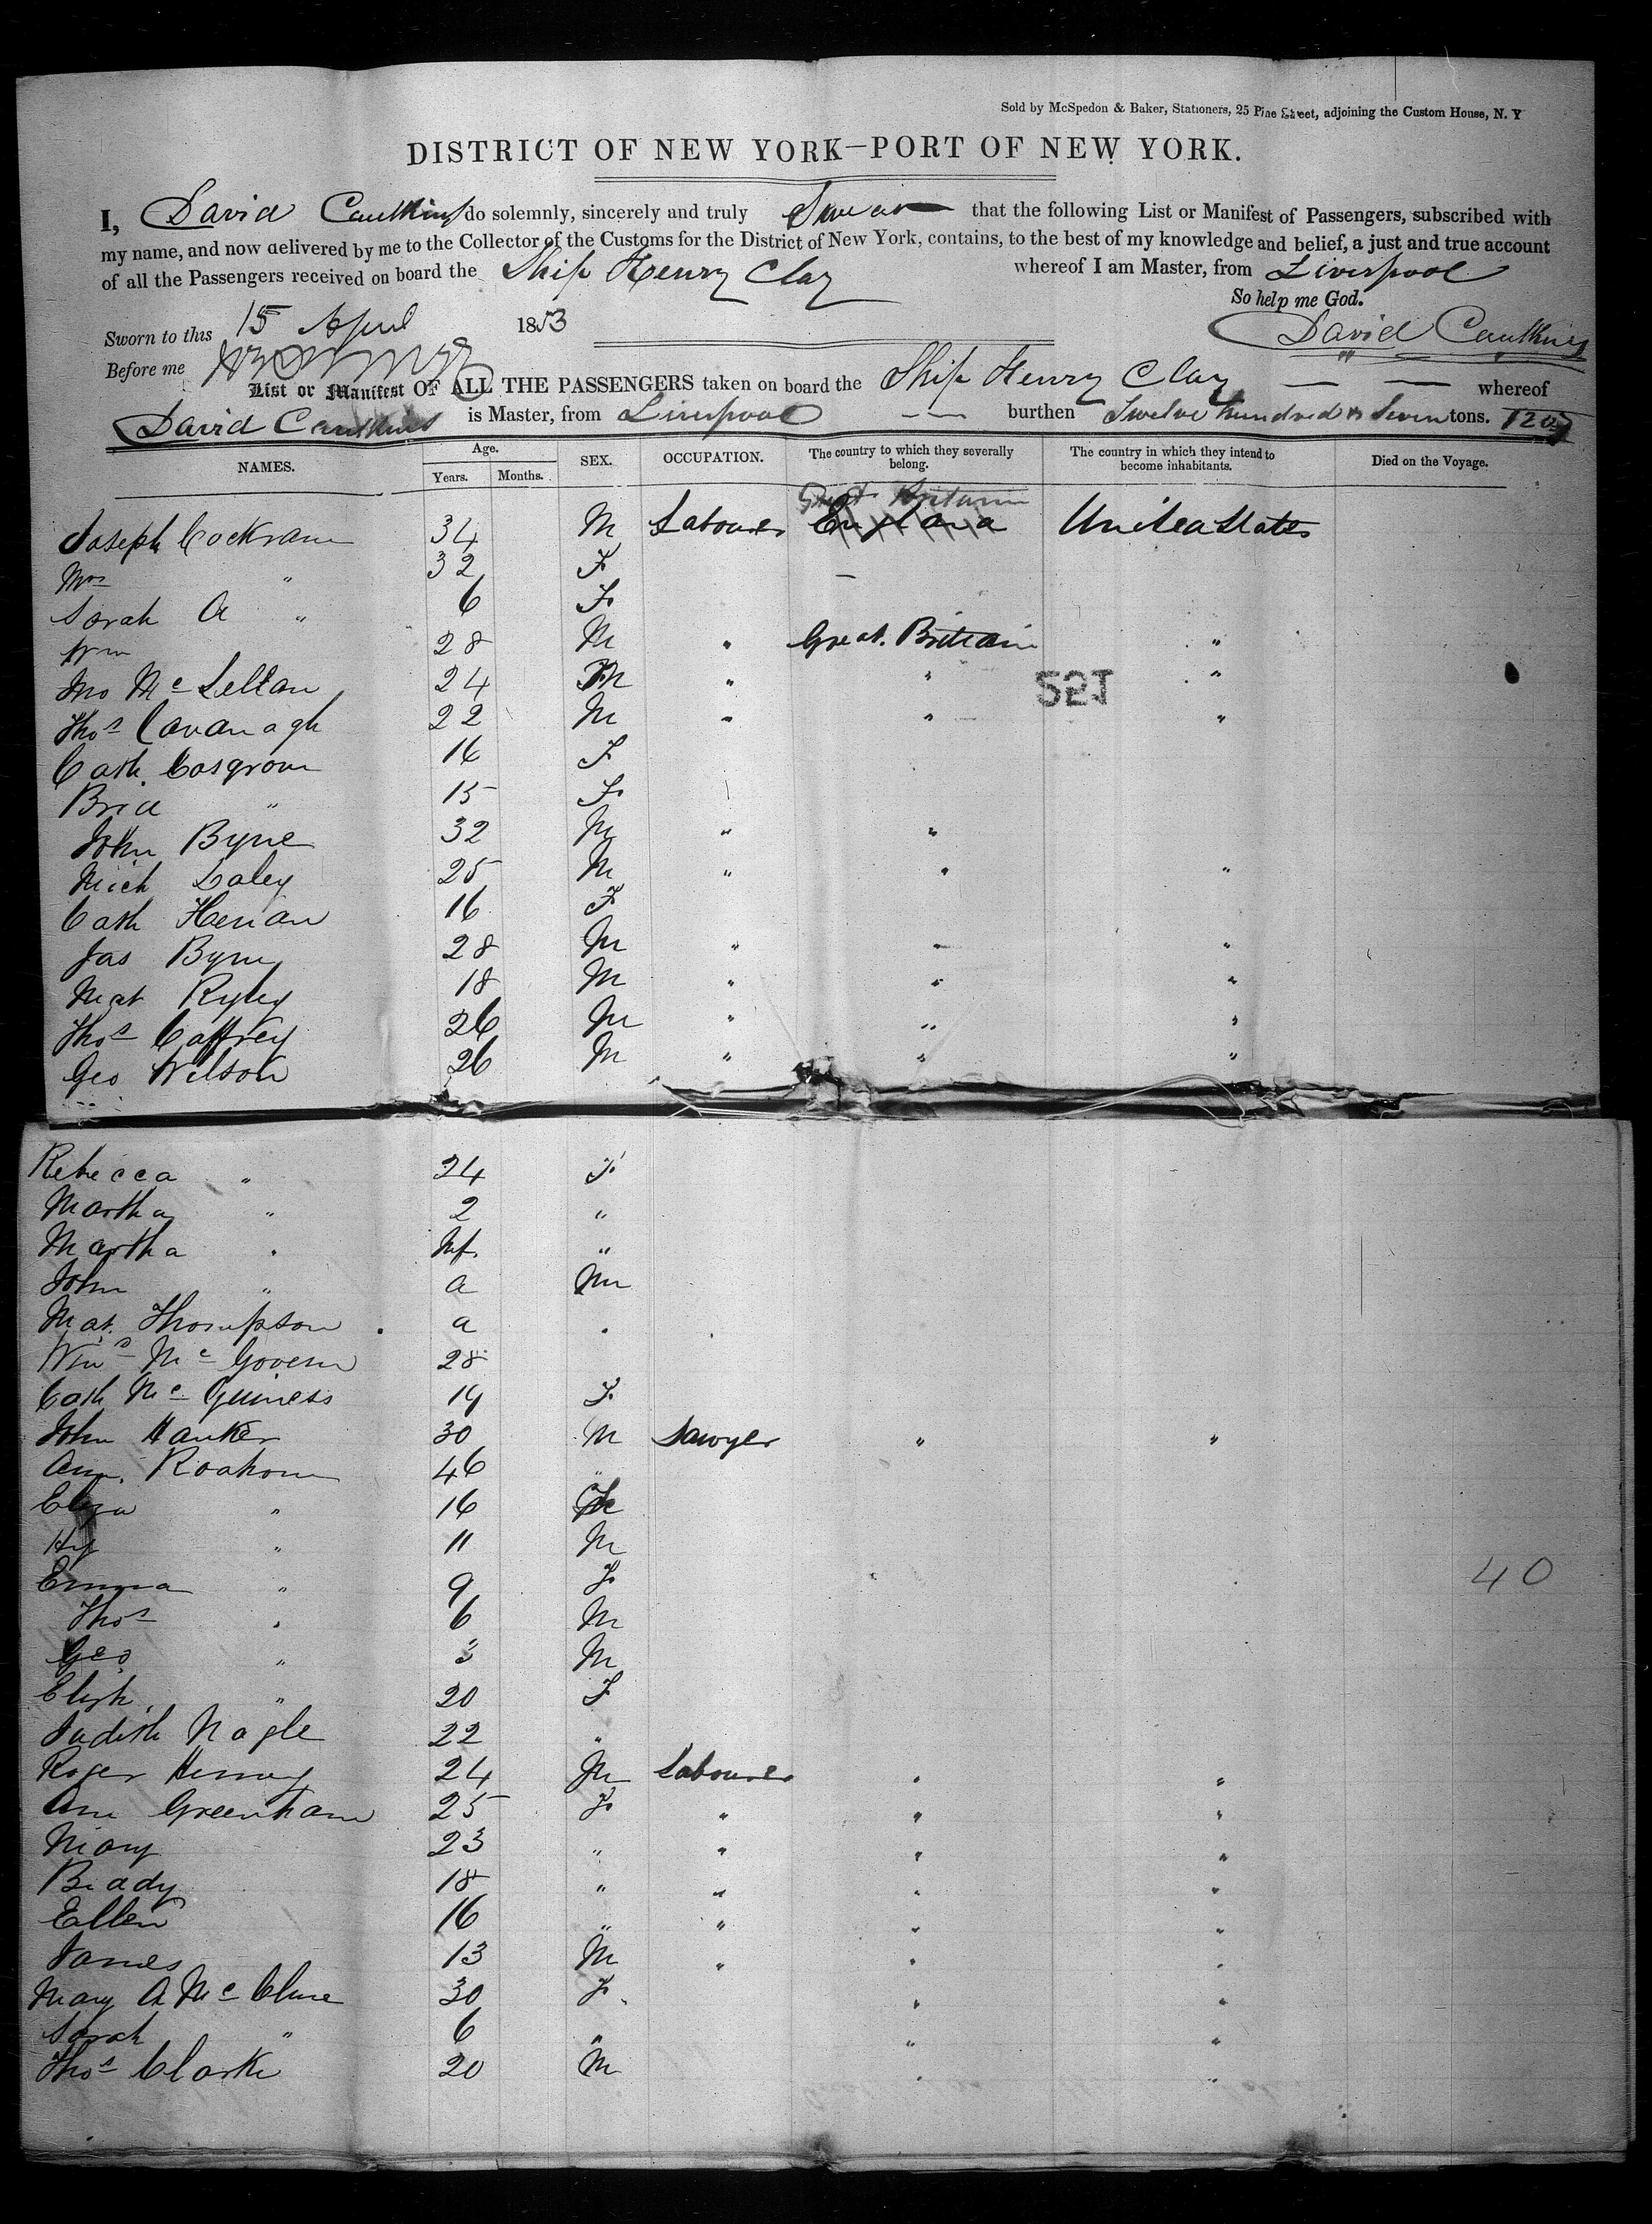 Sold by McSpedon & Baker, Stationers, 25 Pine Street, adjoining the Custom House, N. Y
DISTRICT OF NEW YORK—PORT OF NEW YORK.
I, David Caulkins do solemnly, sincerely and truly Swear that the following List or Manifest of Passengers, subscribed with
my name, and now delivered by me to the Collector of the Customs for the District of New York, contains, to the best of my knowledge and belief, a just and true account
of all the Passengers received on board the Ship Henry Clay whereof I am Master, from Liverpool
So help me God.
Sworn to this 15 April 1853 David Caulkins
Before me
List or Manifest OF ALL THE PASSENGERS taken on board the Ship Henry Clay — — whereof
David Caulkins is Master, from Liverpool —— burthen Twelve hundred & Seven tons. 1207
NAMES. Age. Years. Months. SEX. OCCUPATION. The country to which they severally belong. The country in which they intend to become inhabitants. Died on the Voyage.
Great Britain
Joseph Cockram 34 M Labourer England United States
Mrs " 32 F —
Sarah A " 6 F
Wm 28 M " Great Britain "
Jno Mc Lellan 24 M " " "
Thos Cavanagh 22 M " " "
Cath. Cosgrove 16 F
Brid " 15 F
John Byrne 32 M " "
Mich Daley 25 M " " "
Cath 16 F
Jas Byrne 28 M " " "
Mat Ryley 18 M " " "
Thos Caffrey 26 M " " "
Geo Wilson 26 M " " "
Rebecca " 24 F
Martha " 2 "
Martha " Inf. "
John " a M
Mat. Thompson a "
Wm Mc Govern 28
Cath Mc Guiness 19 F
John Hanker 30 M Sawyer " "
Ann 46 "
Eliza " 16 F
Hy " 11 M
Emma " 9 F
40
Thos " 6 M
Geo " 3 M
Elizh " 20 F
Judith Nagle 22 "
Roger 24 M Labourer " "
Ann Greenham 25 F " " "
Mary 23 " " " "
Biddy 18 " " " "
Ellen 16 " " " "
James 13 M " " "
Mary A Mc Clure 30 F " "
Sarah " 6 " " "
Thos Clarke 20 M " "